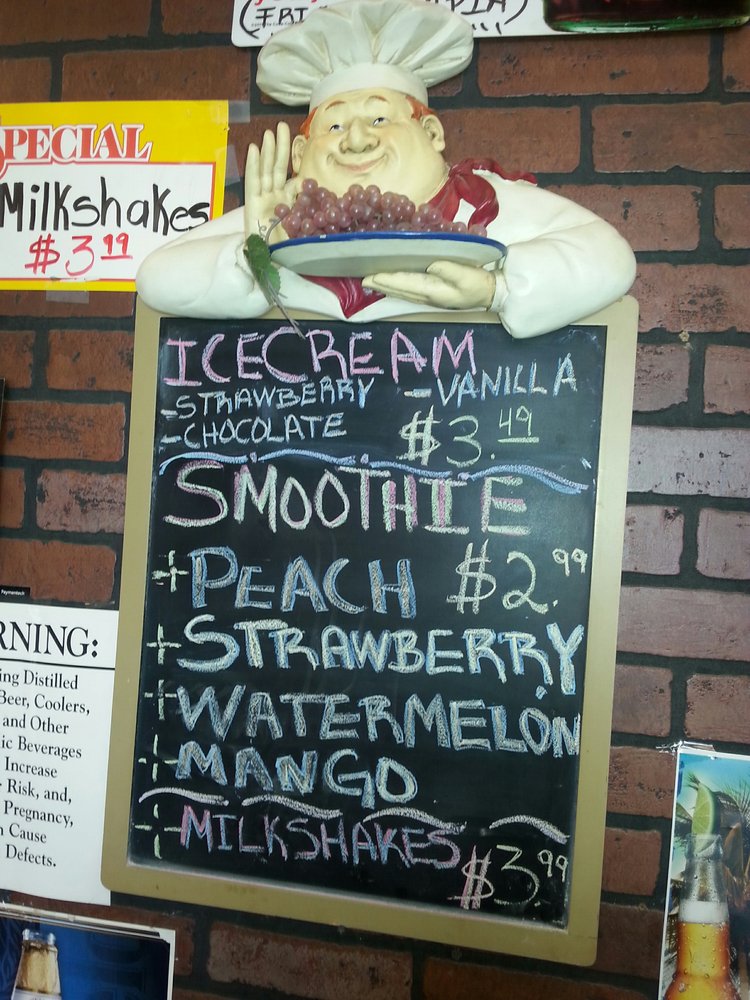 FRI
SPECIAL
Milkshakes
$3.99
ICECREAM
-STRAWBERRY -VANILLA
-CHOCOLATE $3.49
SMOOTHIE
+PEACH $2.99
+STRAWBERRY
+WATERMELÓN
+MANGO
+MILKSHAKES
$3.99
Paymentech
RNING:
ing Distilled
Beer, Coolers,
and Other
ic Beverages
Increase
Risk, and,
Pregnancy,
Cause
Defects.